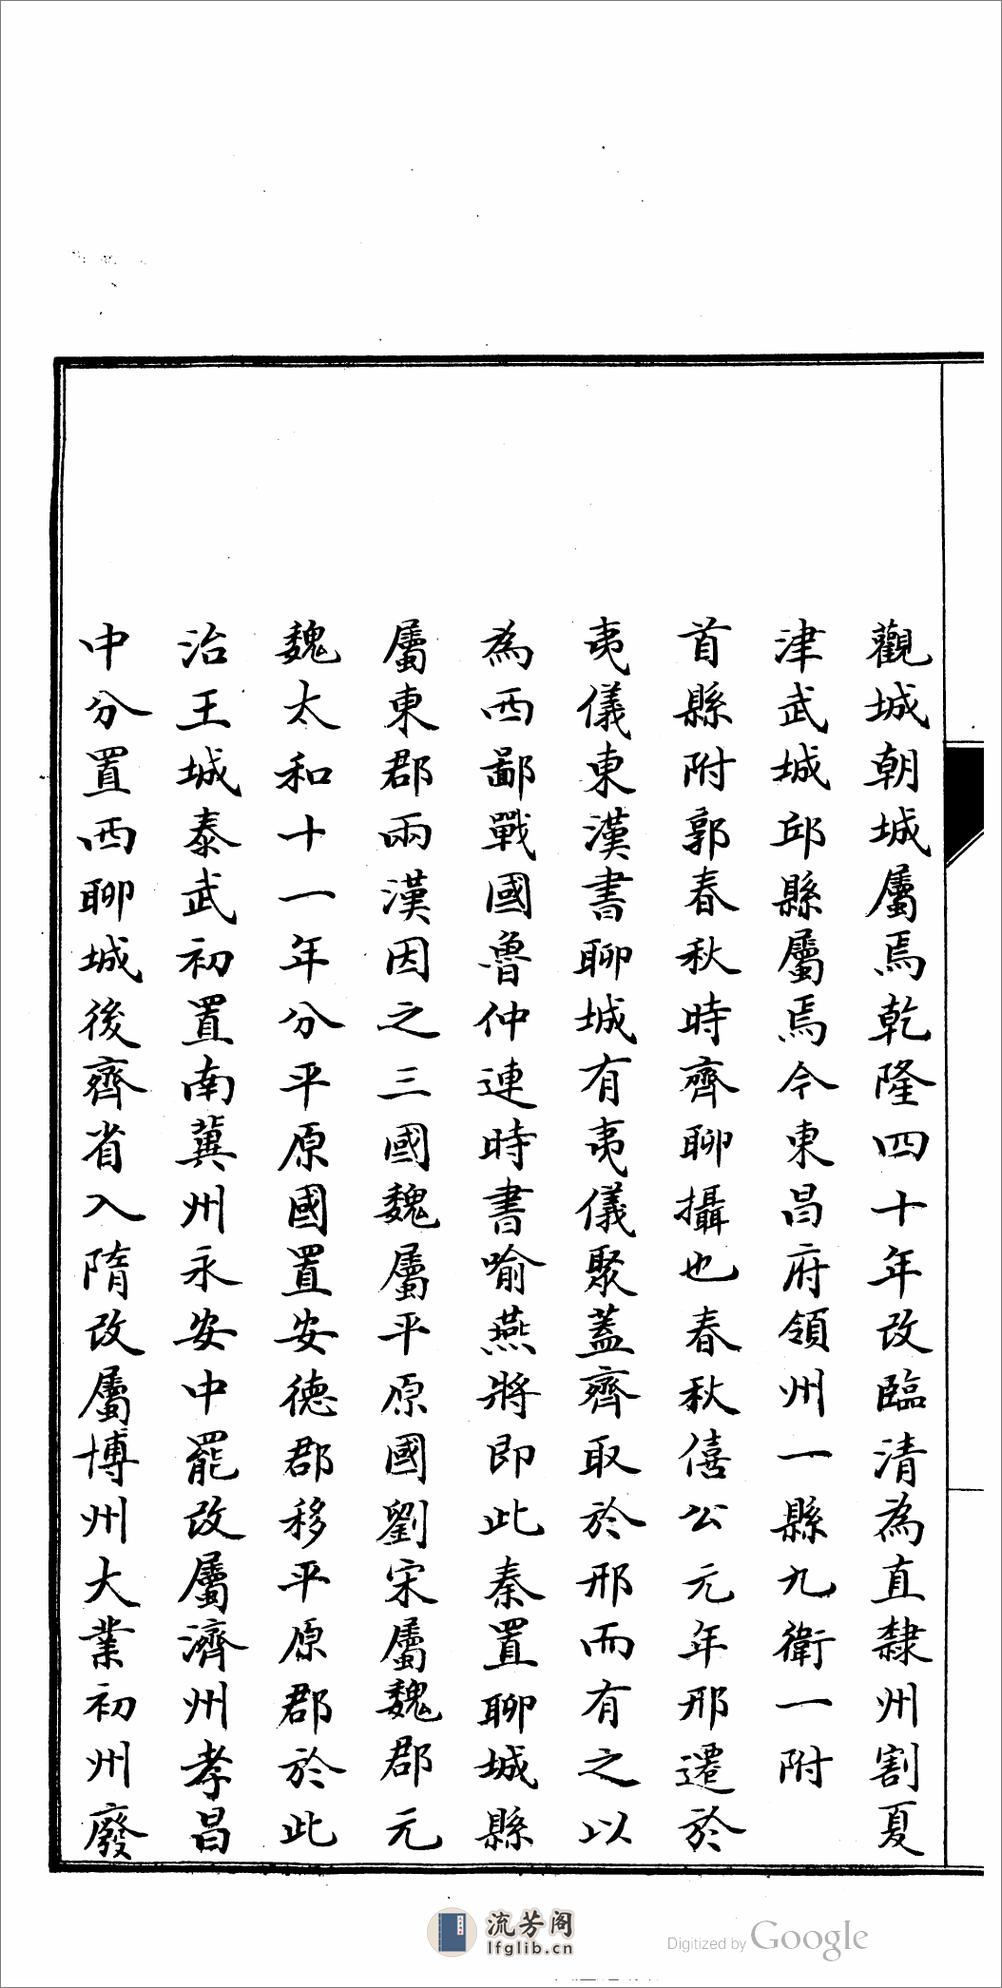 觀城朝城屬焉乾隆四十年改臨清為直隸州割夏
津武城邱縣屬焉今東昌府領州一縣九衛一附
首縣附郭春秋時齊聊攝也春秋僖公元年邢遷於
夷儀東漢書聊城有夷儀聚蓋齊取於邢而有之以
為西鄙戰國魯仲連時書喻燕將即此秦置聊城縣
屬東郡兩漢因之三國魏屬平原國劉宋屬魏郡元
魏太和十一年分平原國置安德郡移平原郡於此
治王城泰武初置南冀州永安中罷改屬濟州孝昌
中分置西聊城後齊省入隋改屬博州大業初州廢
流芳阁
lfglib.cn
Digitized by Google